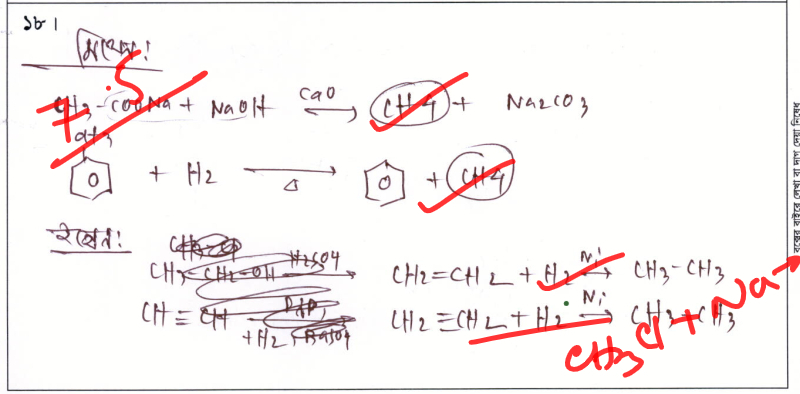 ১৮।
মিথেন:
7.5
CH3-COONa + NaOH CaO ⇌ CH4 + Na2CO3
CH3
+ H2 → Δ + CH4
ইথেন:
CH3-CH2-OH H2SO4 → CH2=CH2 + H2 Ni → CH3-CH3
CH≡CH + H2 Pd, BaSO4 → CH2≡CH2 + H2 Ni → CH3-CH3
CH3Cl + Na →
বক্সের বাইরে লেখা বা দাগ দেয়া নিষেধ